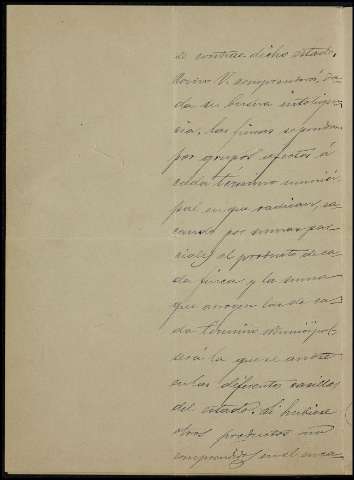 de contra dicho estado.
V. comprenderá, da
da su buena inteligen
cia, las fincas separadas
por grupos afectos á
cada término munici
pal en que radican, sa
cando por sumas par
ciales el producto de ca
da finca y la suma
que arrojen las de ca
da término municipal,
será la que se anote
en las diferentes casillas
del estado. Si hubiese
otros productos no
comprendidos en el enca